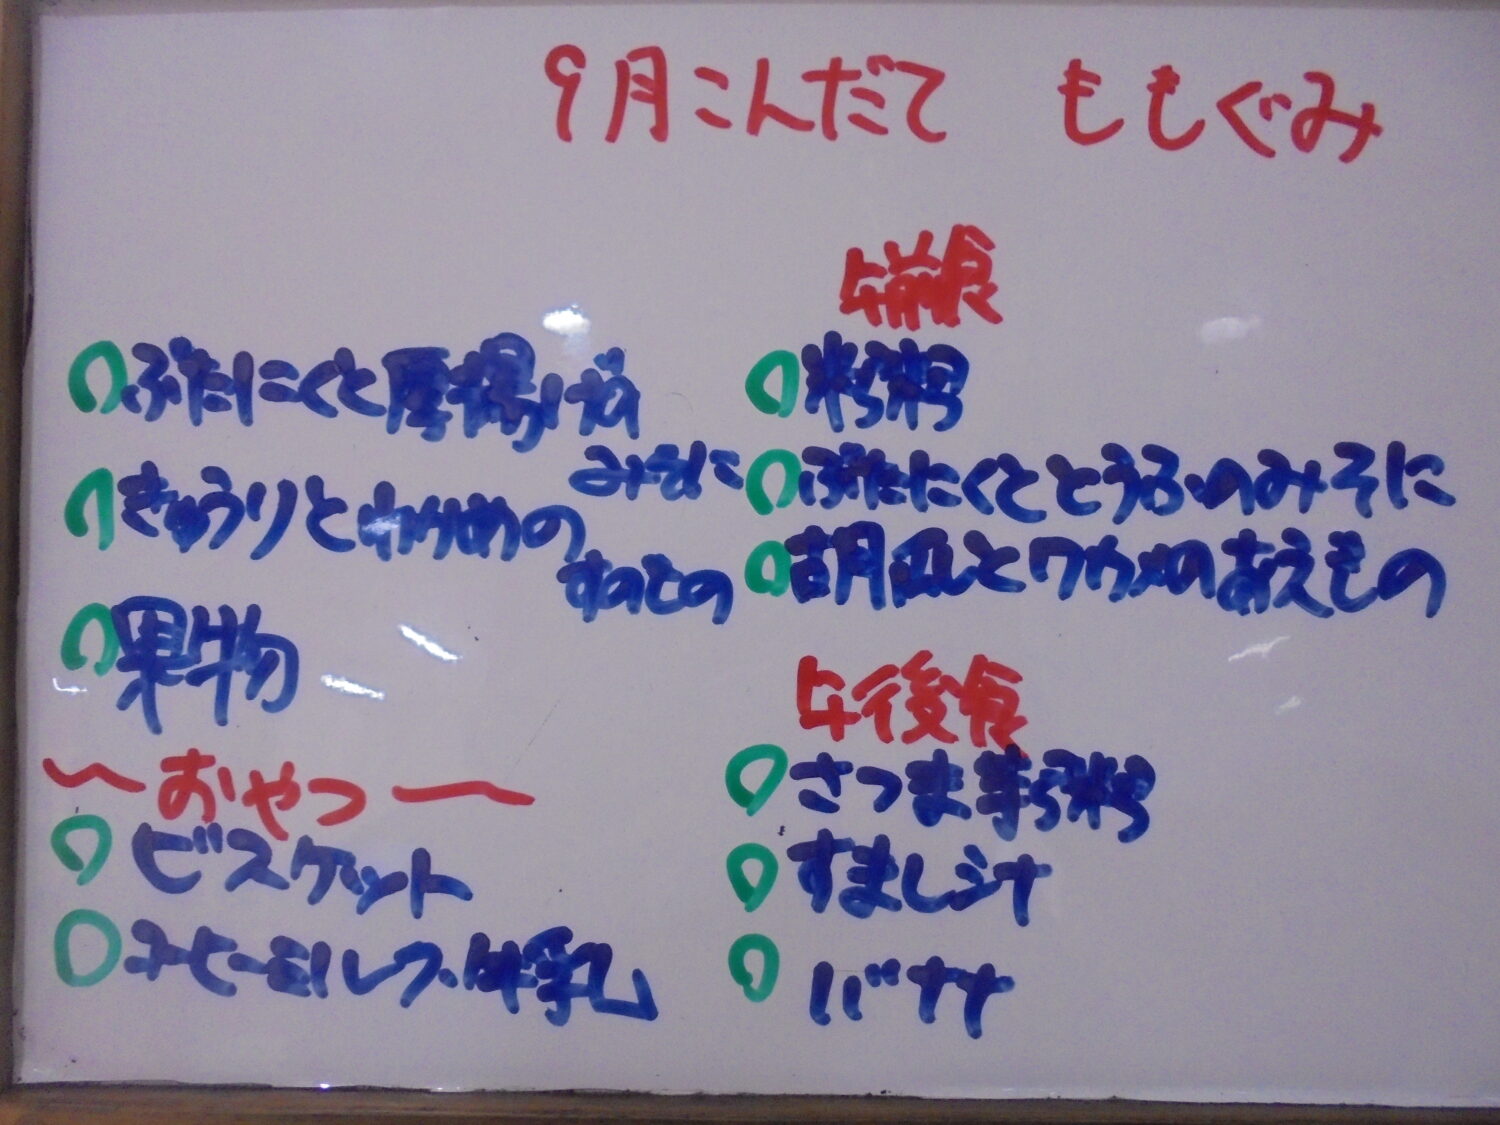 9月こんだて ももぐみ
ぶたにくと厚揚げの
みそに
きゅうりとわかめの
すのもの
果物
〜おやつ〜
ビスケット
牛乳
午前食
粥
ぶたにくととうふのみそに
胡瓜とワカメのあえもの
午後食
さつま芋粥
すまし汁
バナナ